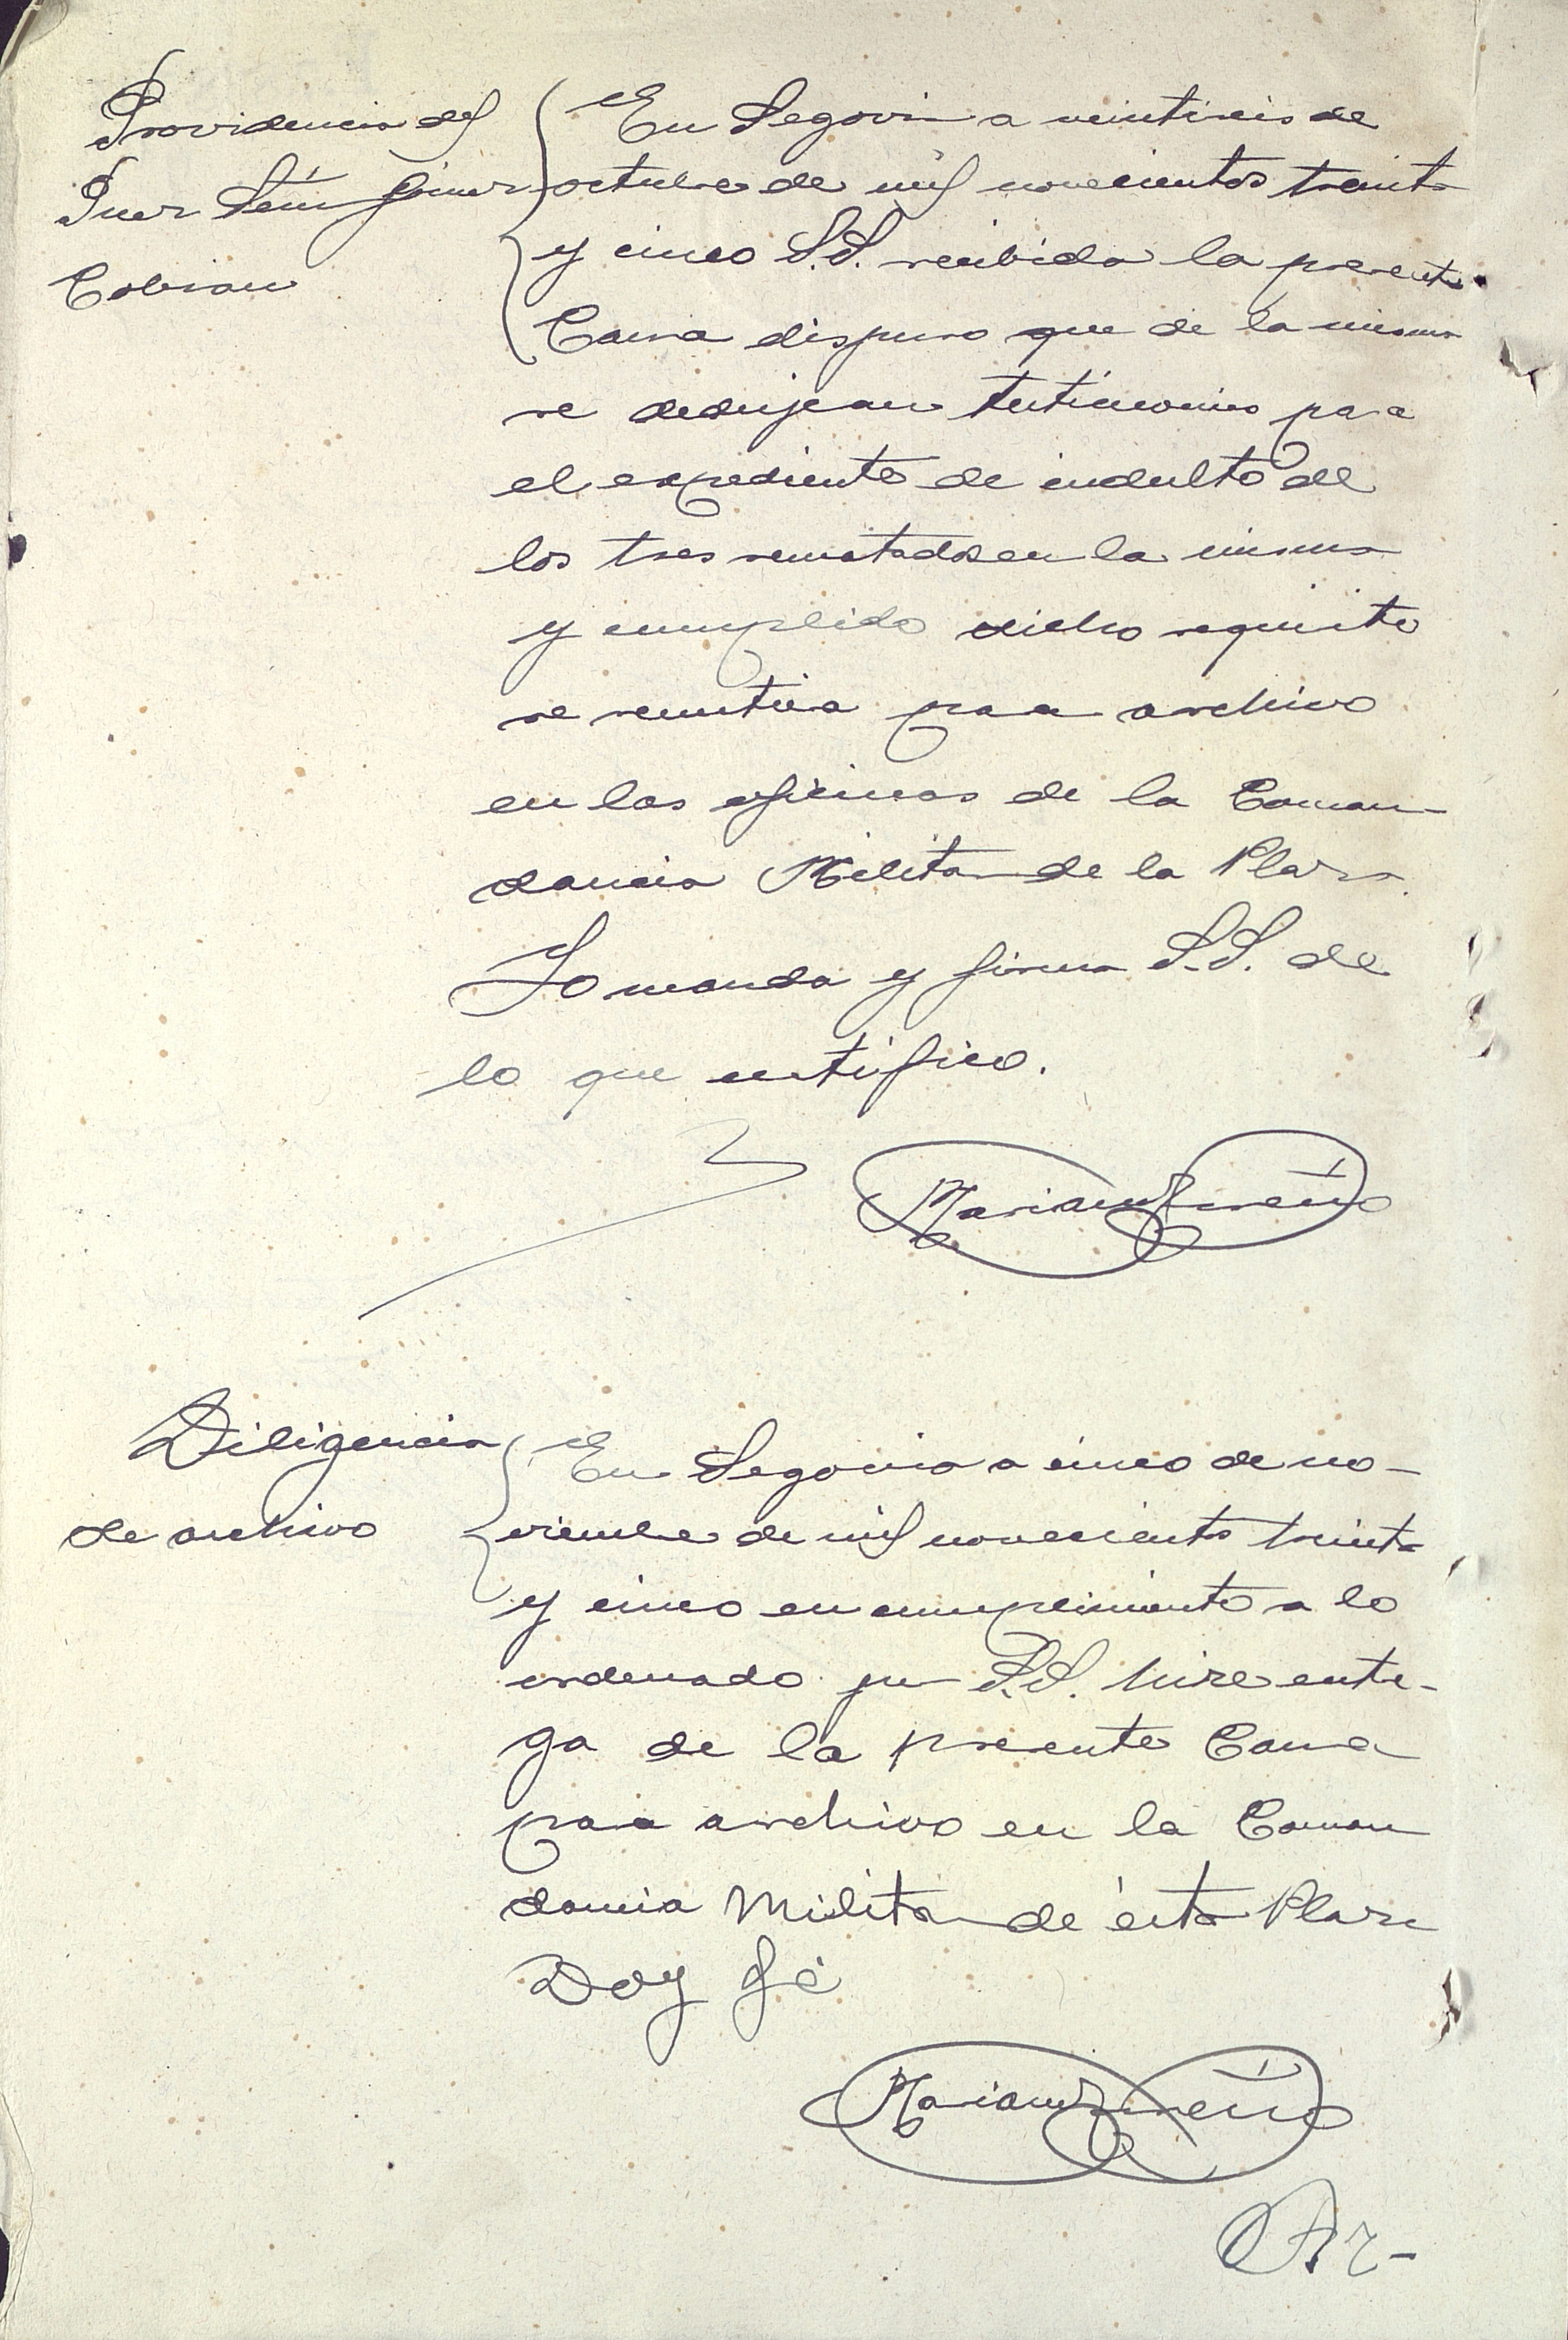 Providencia del
Juez Señor Giner
Cobian
En Segovia a veintiseis de
octubre de mil novecientos treinta
y cinco S.S. recibida la presente
Causa dispuso que de la misma
se dedujean testimonios para
el expediente de indulto de
los tres rematados en la misma
y cumplido dicho requisito
se remitiera para archivo
en las oficinas de la Coman-
dancia Militar de la Plaza.
Lo manda y firma S.S. de
lo que certifico.
Mariano
Diligencia
de archivo
En Segovia a cinco de no-
viembre de mil novecientos treinta
y cinco en cumplimiento a lo
ordenado por S.S. hice entre-
ga de la presente Causa
para archivo en la Coman
dancia Militar de ésta Plaza
Doy fé
Mariano